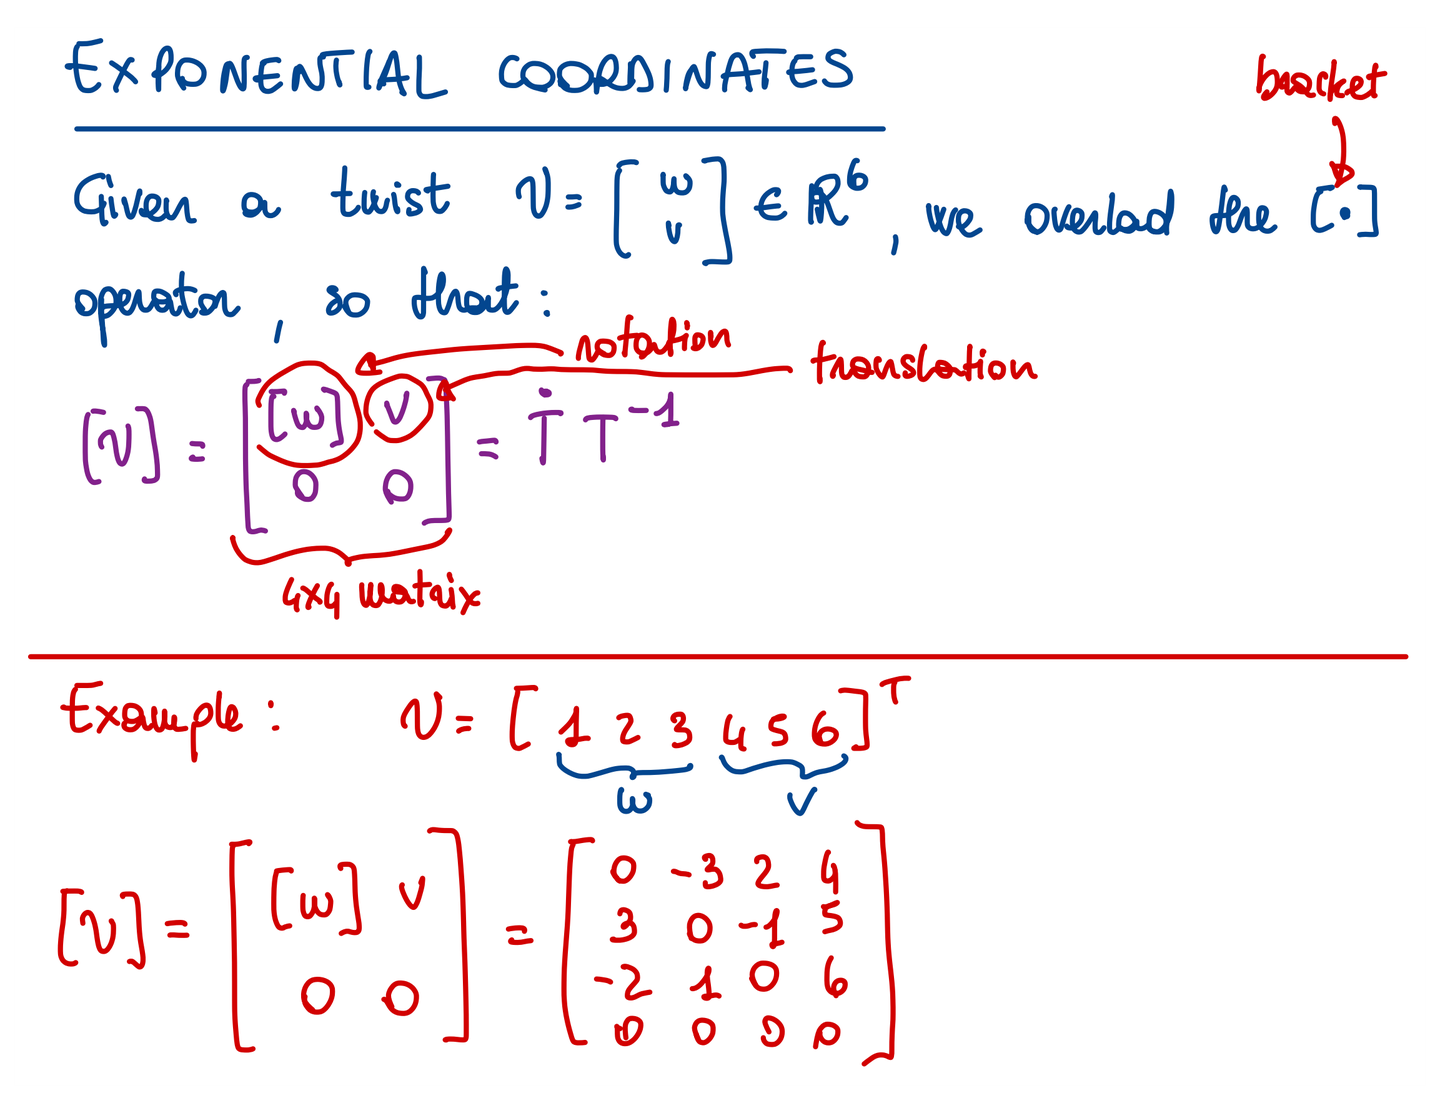 EXPONENTIAL COORDINATES
bracket
Given a twist 𝒱 = [ w v ] ∈ ℝ⁶, we overload the [·]
operator, so that:
rotation
translation
[𝒱] = [ [w] v
0 0 ] = Ṫ T⁻¹
4x4 matrix
Example: 𝒱 = [ 1 2 3 4 5 6 ]ᵀ
w v
[𝒱] = [ [w] v
0 0 ] = [ 0 -3 2 4
3 0 -1 5
-2 1 0 6
0 0 0 0 ]